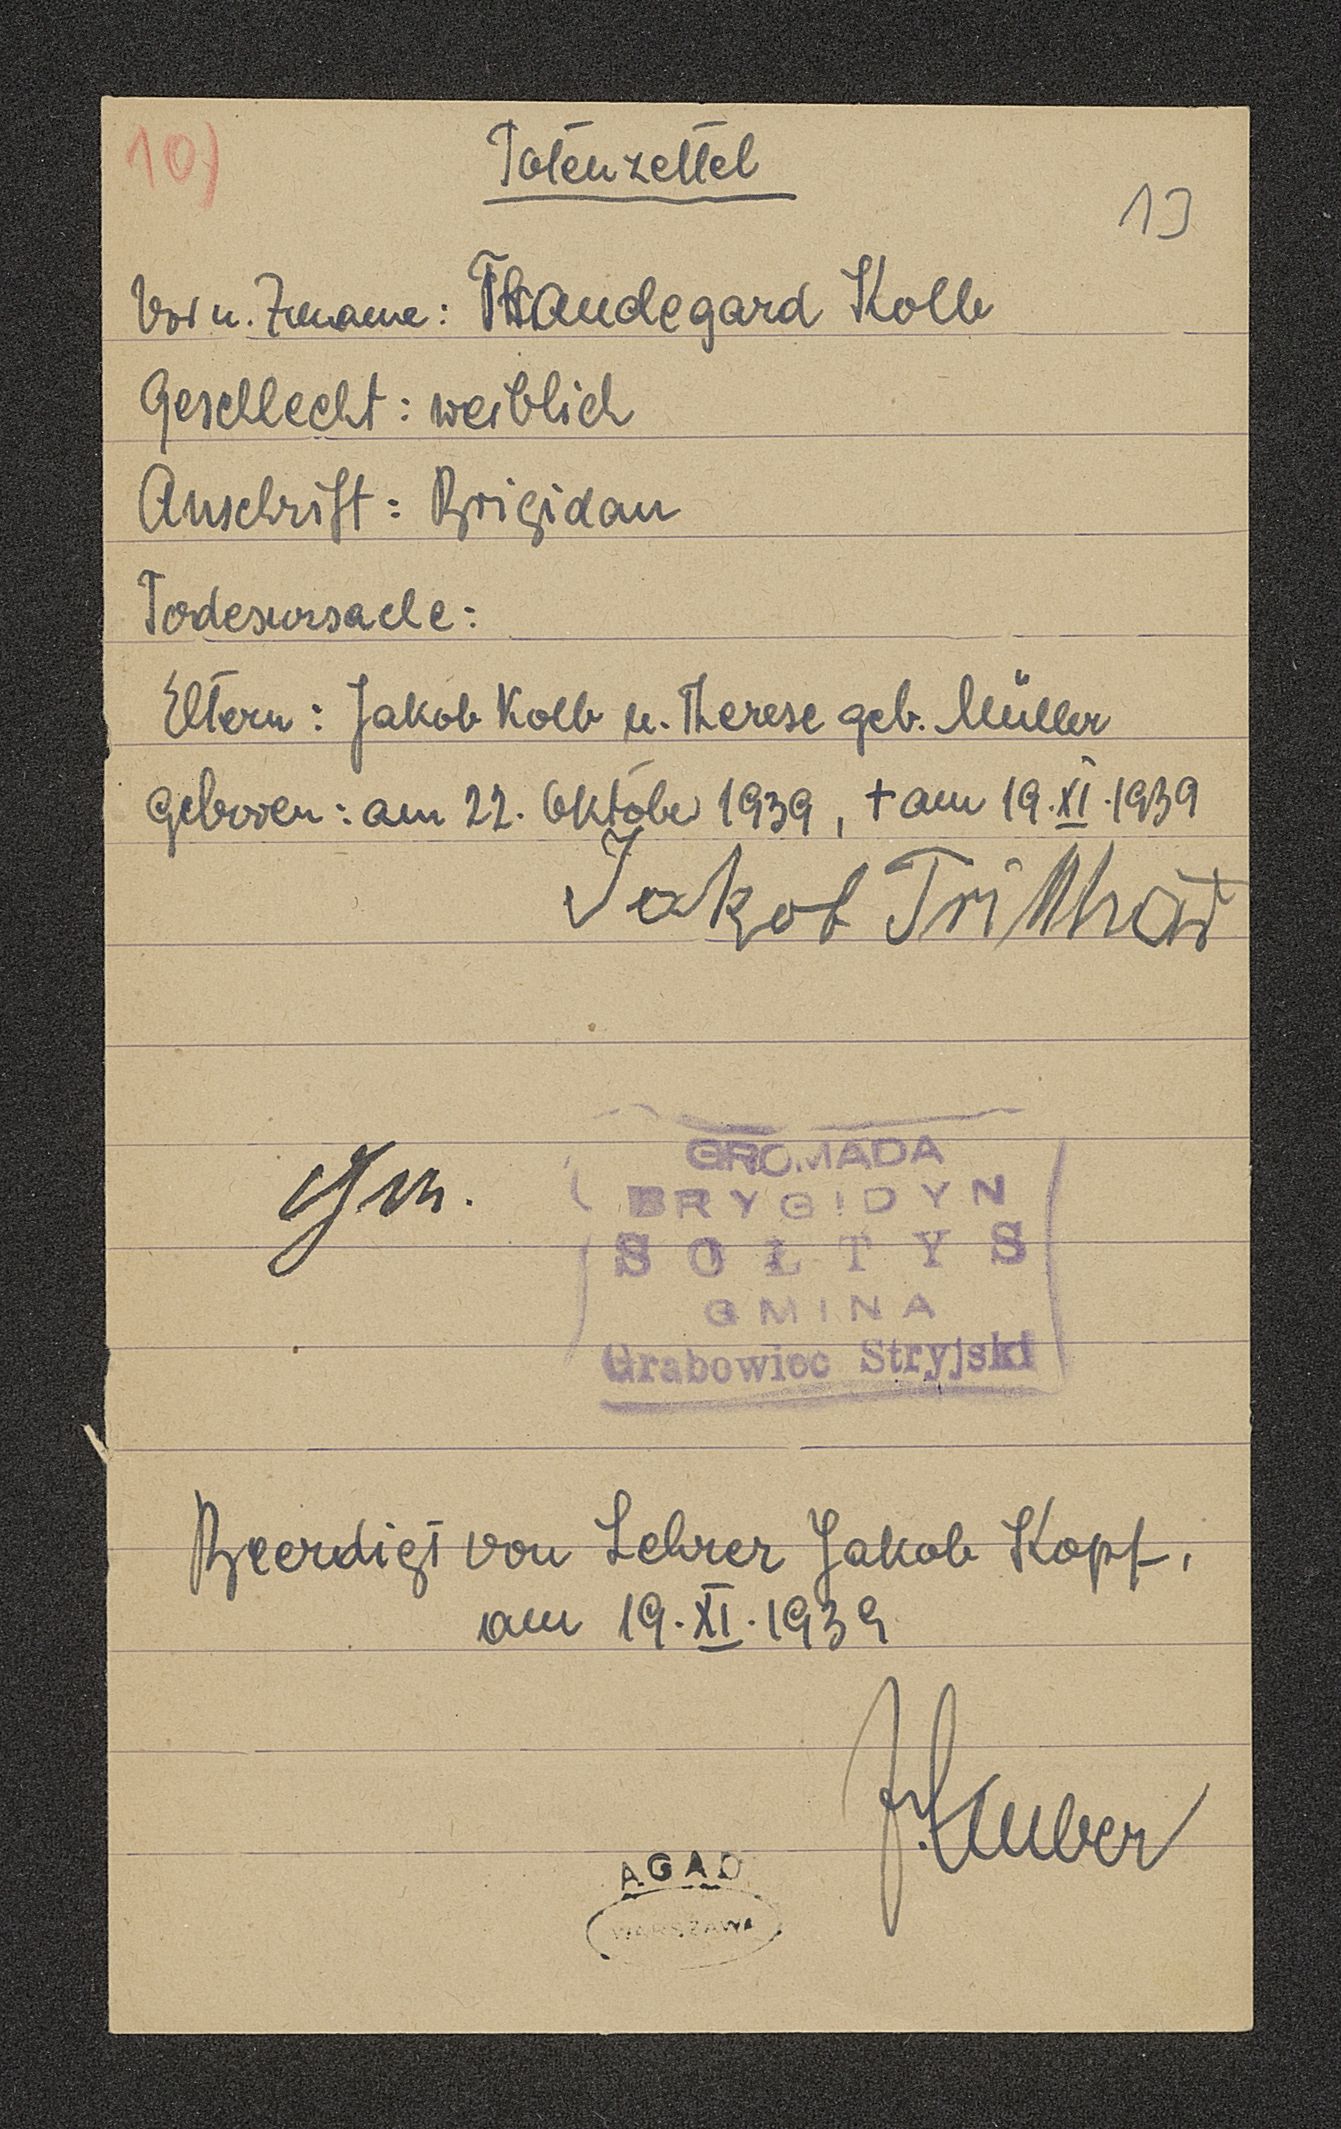 10)
Totenzettel
13
Vor u. Zuname: Thraudegard Kolb
Geschlecht: weiblich
Anschrift: Brigidau
Todesursache:
Eltern: Jakob Kolb u. Therese geb. Müller
geboren: am 22. Oktober 1939, † am 19.XI.1939
Jakob
GROMADA
BRYGIDYN
SOŁTYS
GMINA
Grabowiec Stryjski
Beerdigt von Lehrer Jakob Kopf,
am 19.XI.1939
AGAD
WARSZAWA